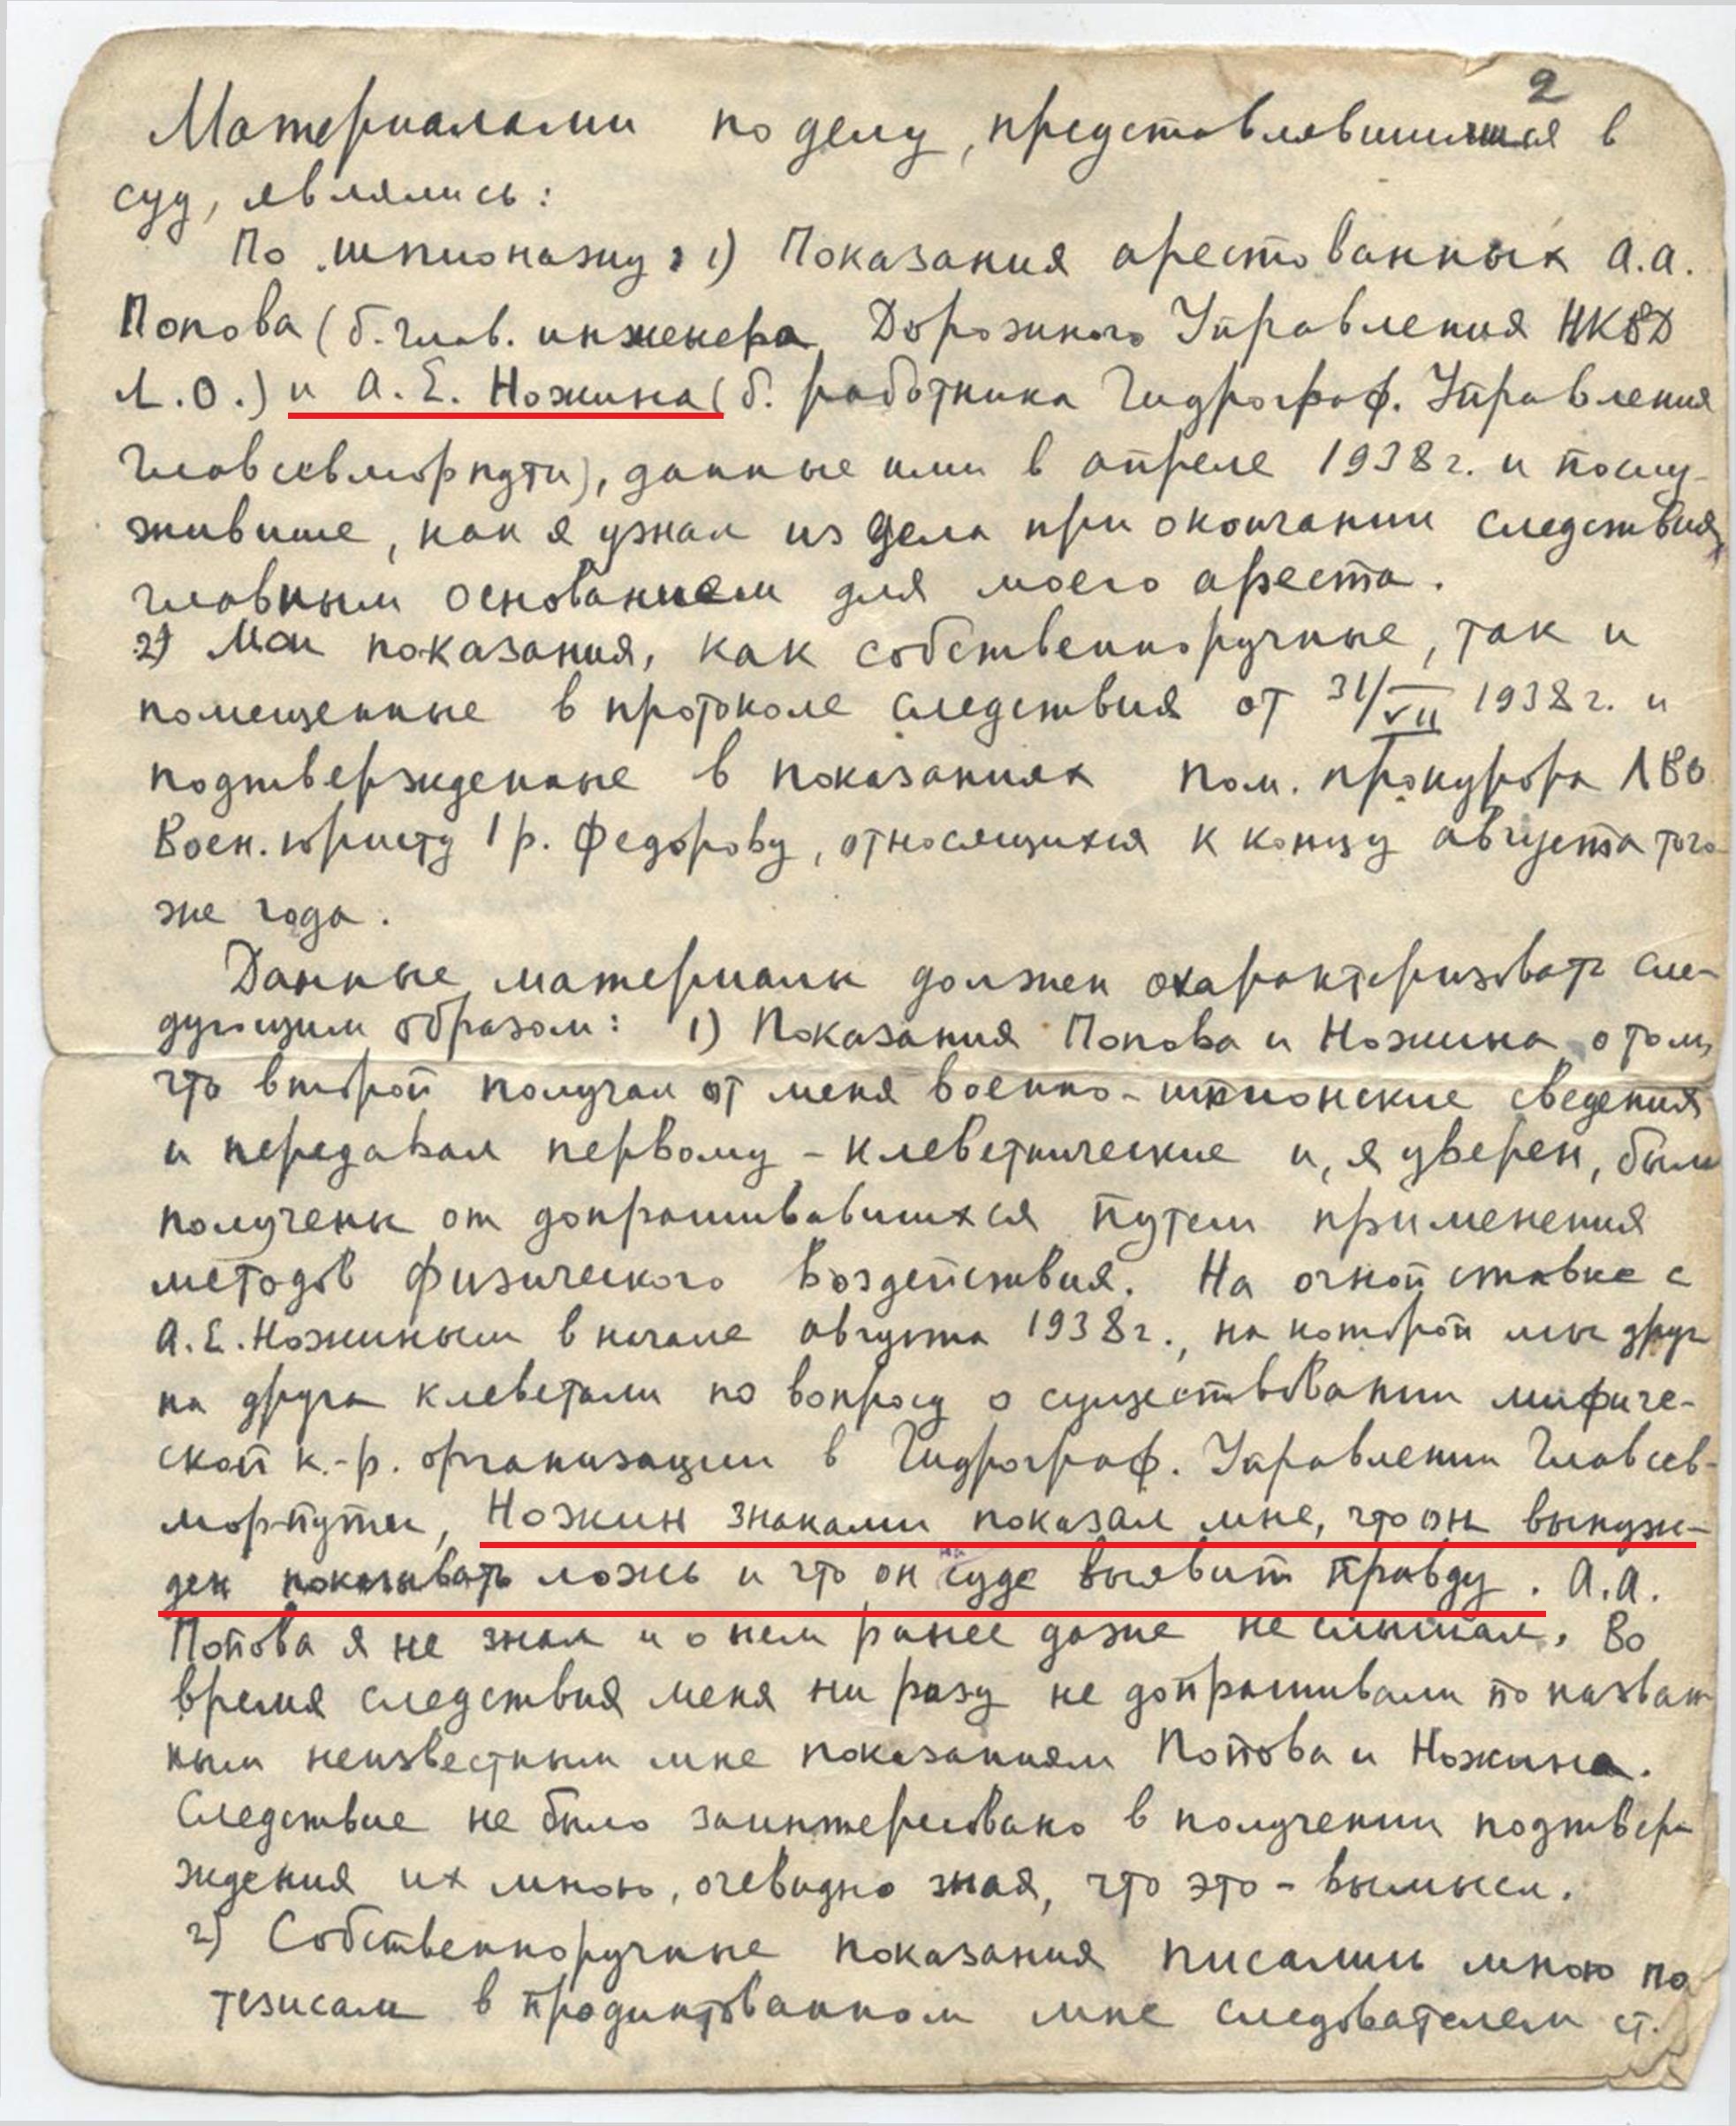 2
Материалами по делу, представлявшимися в
суд, являлись:
По шпионажу: 1) Показания арестованных А.А.
Попова (б. глав. инженера Дорожного Управления НКВД
Л.О.) и А.Е. Ножина (б. работника Гидрограф. Управления
Главсевморпути), данные ими в апреле 1938 г. и послу-
жившие, как я узнал из дела при окончании следствия,
главным основанием для моего ареста.
2) Мои показания, как собственноручные, так и
помещенные в протоколе следствия от 31/VII 1938 г. и
подтвержденные в показаниях пом. прокурора ЛВО
Воен. юристу 1 р. Федорову, относящихся к концу августа того
же года.
Данные материалы должен охарактеризовать сле-
дующим образом: 1) Показания Попова и Ножина о том,
что второй получал от меня военно-шпионские сведения
и передавал первому - клеветнические и, я уверен, были
получены от допрашивавшихся путем применения
методов физического воздействия. На очной ставке с
А.Е. Ножиным в начале августа 1938 г., на которой мы друг
на друга клеветали по вопросу о существовании мифиче-
ской к.-р. организации в Гидрограф. Управлении Главсев-
морпути, Ножин знаками показал мне, что он вынуж-
ден показывать ложь и что он на суде выявит правду. А.А.
Попова я не знал и о нем ранее даже не слышал. Во
время следствия меня ни разу не допрашивали по назван
ным неизвестным мне показаниям Попова и Ножина.
Следствие не было заинтересовано в получении подтвер
ждения их мною, очевидно зная, что это - вымысел.
2) Собственноручные показания писались мною по
тезисам в продиктованном мне следователем ст.